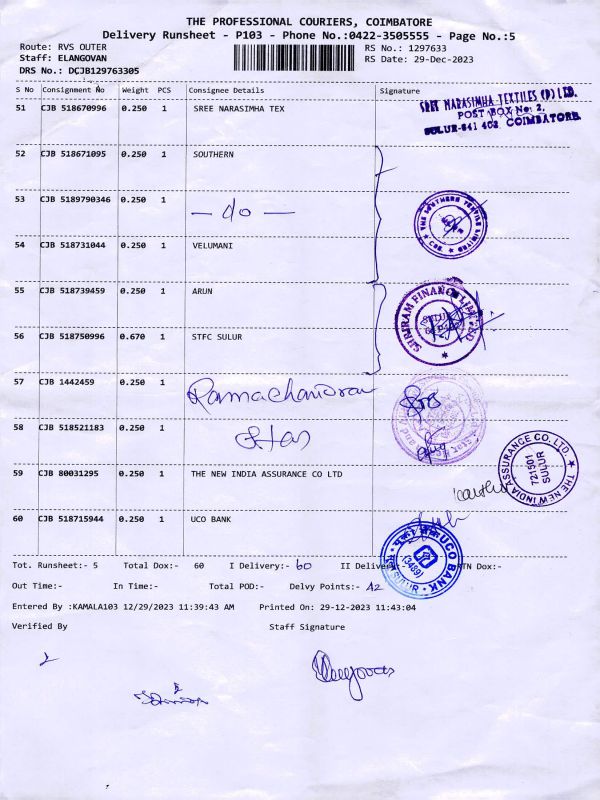 THE PROFESSIONAL COURIERS, COIMBATORE
Delivery Runsheet - P103 - Phone No.:0422-3505555 - Page No.:5
Route: RVS OUTER
RS No.: 1297633
Staff: ELANGOVAN
RS Date: 29-Dec-2023
DRS No.: DCJB129763305
S No Consignment No Weight PCS Consignee Details Signature
51 CJB 518670996 0.250 1 SREE NARASIMHA TEX
SREE NARASIMHA TEXTILES (P) LTD.
POST BOX No: 2,
SULUR-641 402, COIMBATORE.
52 CJB 518671095 0.250 1 SOUTHERN
53 CJB 5189790346 0.250 1 — do —
THE SOUTHERN TEXTILE LIMITED
54 CJB 518731044 0.250 1 VELUMANI
55 CJB 518739459 0.250 1 ARUN
SHRIRAM FINANCE LIMITED
SULUR
56 CJB 518750996 0.670 1 STFC SULUR
57 CJB 1442459 0.250 1 Ramachandran
58 CJB 518521183 0.250 1
59 CJB 80031295 0.250 1 THE NEW INDIA ASSURANCE CO LTD
THE NEW INDIA ASSURANCE CO. LTD.
721501
SULUR
60 CJB 518715944 0.250 1 UCO BANK
यूको बैंक UCO BANK
(3489)
SULUR
Tot. Runsheet:- 5 Total Dox:- 60 I Delivery:- 60 II Deliver RTN Dox:-
Out Time:- In Time:- Total POD:- Delvy Points:- 42
Entered By :KAMALA103 12/29/2023 11:39:43 AM Printed On: 29-12-2023 11:43:04
Verified By Staff Signature
Elangovan